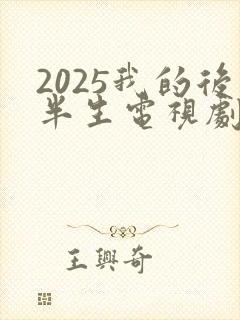 2025我的後
半生電視劇
王興奇